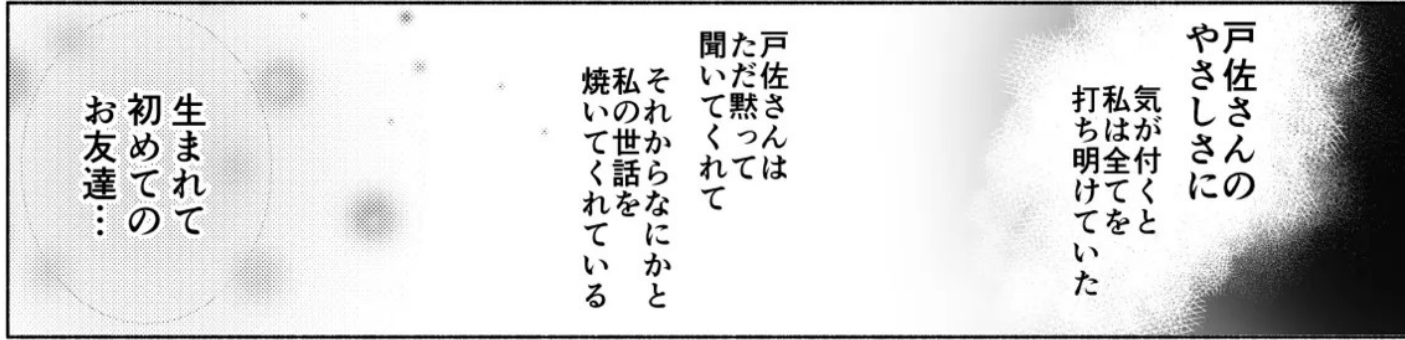 戸佐さんの
やさしさに
気が付くと
私は全てを
打ち明けていた
戸佐さんは
ただ黙って
聞いてくれて
それからなにかと
私の世話を
焼いてくれている
生まれて
初めての
お友達…